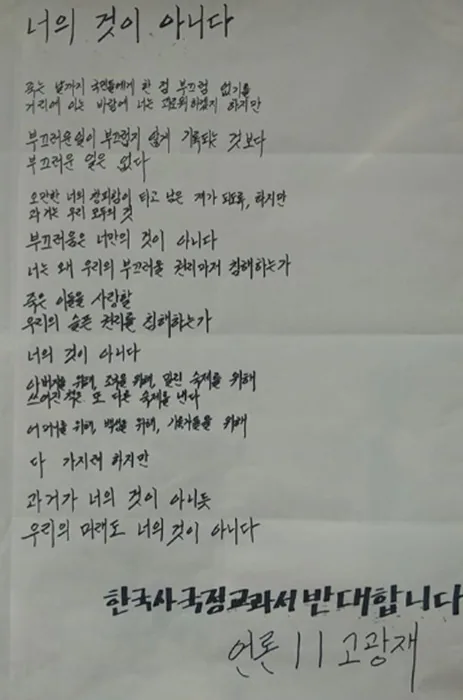 너의 것이 아니다
죽는 날까지 국민들에게 한 점 부끄럼 없기를
거리에 이는 바람에 너는 괴로워하겠지 하지만
부끄러운 일이 부끄럽지 않게 기록되는 것보다
부끄러운 일은 없다
오만한 너의 창피함이 타고 남은 재가 되도록, 하지만
과거는 우리 모두의 것
부끄러움은 너만의 것이 아니다
너는 왜 우리의 부끄러울 권리마저 침해하는가
죽은 이들을 사랑할
우리의 슬픈 권리를 침해하는가
너의 것이 아니다
아버지를 위해, 조국을 위해, 밀린 숙제를 위해
쓰여진 책은 또 다른 숙제를 낸다
어머니를 위해, 백성을 위해, 기득권들을 위해
다 가지려 하지만
과거가 너의 것이 아니듯
우리의 미래도 너의 것이 아니다
한국사국정교과서 반대합니다
언론 11 고광재